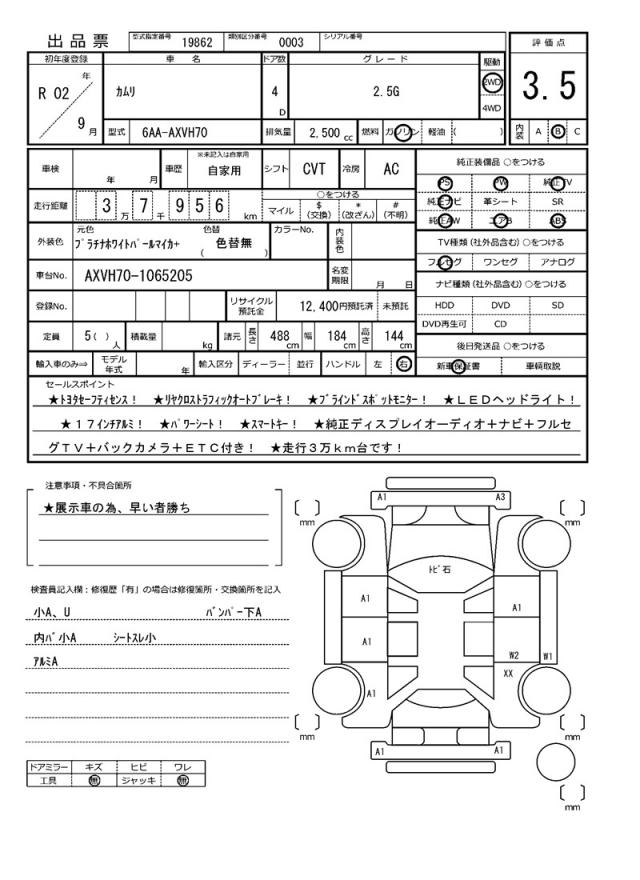 出品票 型式指定番号 19862 類別区分番号 0003 シリアル番号
評価点
3.5
内装 A B C
初年度登録 車名 ドア数 グレード 駆動
R 02 年 9 月 カムリ 4 D 2.5G 2WD 4WD
型式 6AA-AXVH70 排気量 2,500 cc 燃料 ガソリン 軽油 ( )
車検 年 月 車歴 ※未記入は自家用 自家用 シフト CVT 冷房 AC
走行距離 3 万 7 千 9 5 6 km ○をつける
マイル $ (交換) * (改ざん) # (不明)
外装色 元色 プラチナホワイトパールマイカ+ 色替 ( 色替無 ) カラーNo. 内装色
車台No. AXVH70-1065205 名変期限 月 日
登録No. リサイクル預託金 12,400円預託済 未預託
定員 5( ) 人 積載量 kg 諸元 長さ 488 cm 幅 184 cm 高さ 144 cm
輸入車のみ⇒ モデル年式 年 輸入区分 ディーラー 並行 ハンドル 左 右
純正装備品 ○をつける
PS PW 純正TV
純正ナビ 革シート SR
純正AW エアB ABS
TV種類 (社外品含む) ○をつける
フルセグ ワンセグ アナログ
ナビ種類 (社外品含む) ○をつける
HDD DVD SD
DVD再生可 CD
後日発送品 ○をつける
新車保証書 車輌取説
セールスポイント
★トヨタセーフティセンス! ★リヤクロストラフィックオートブレーキ! ★ブラインドスポットモニター! ★LEDヘッドライト!
★17インチアルミ! ★パワーシート! ★スマートキー! ★純正ディスプレイオーディオ+ナビ+フルセ
グTV+バックカメラ+ETC付き! ★走行3万km台です!
注意事項・不具合箇所
★展示車の為、早い者勝ち
検査員記入欄:修復歴「有」の場合は修復箇所・交換箇所を記入
小A、U バンパー下A
内バ小A シートスレ小
アルミA
ドアミラー キズ ヒビ ワレ
工具 無 ジャッキ 無
A1 A3
mm mm
トビ石
A1 A1
A1 W2 W1
XX
A1
mm mm
A1 A1
mm